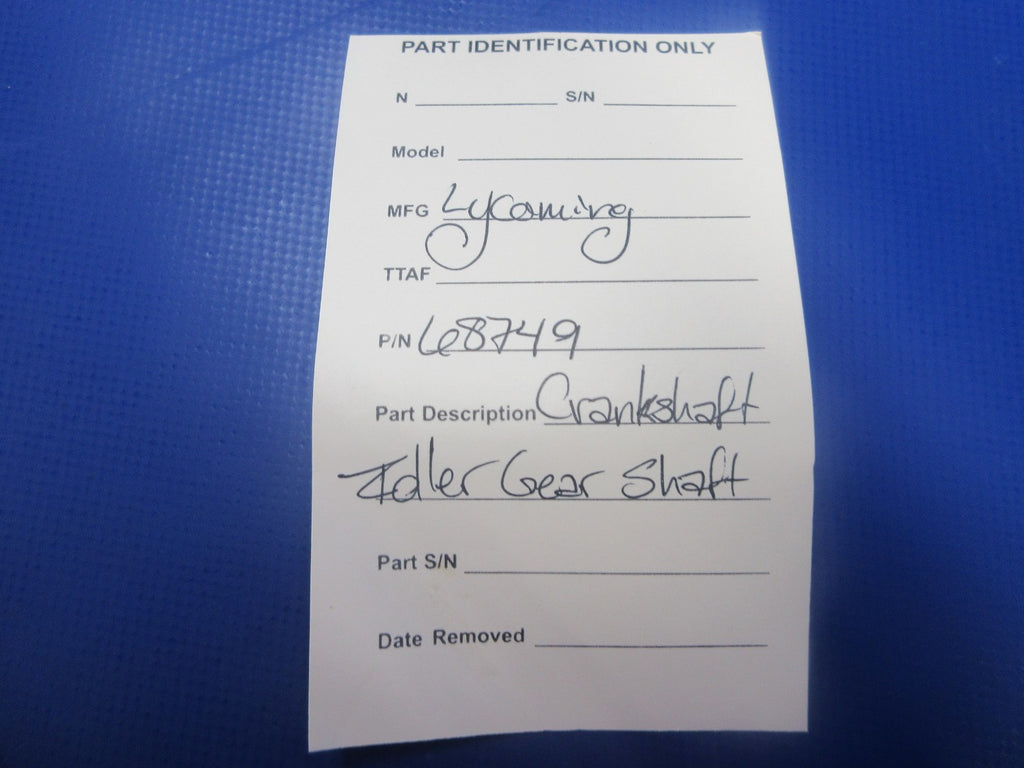 PART IDENTIFICATION ONLY
N S/N
Model
MFG Lycoming
TTAF
P/N 68749
Part Description Crankshaft
Idler Gear Shaft
Part S/N
Date Removed